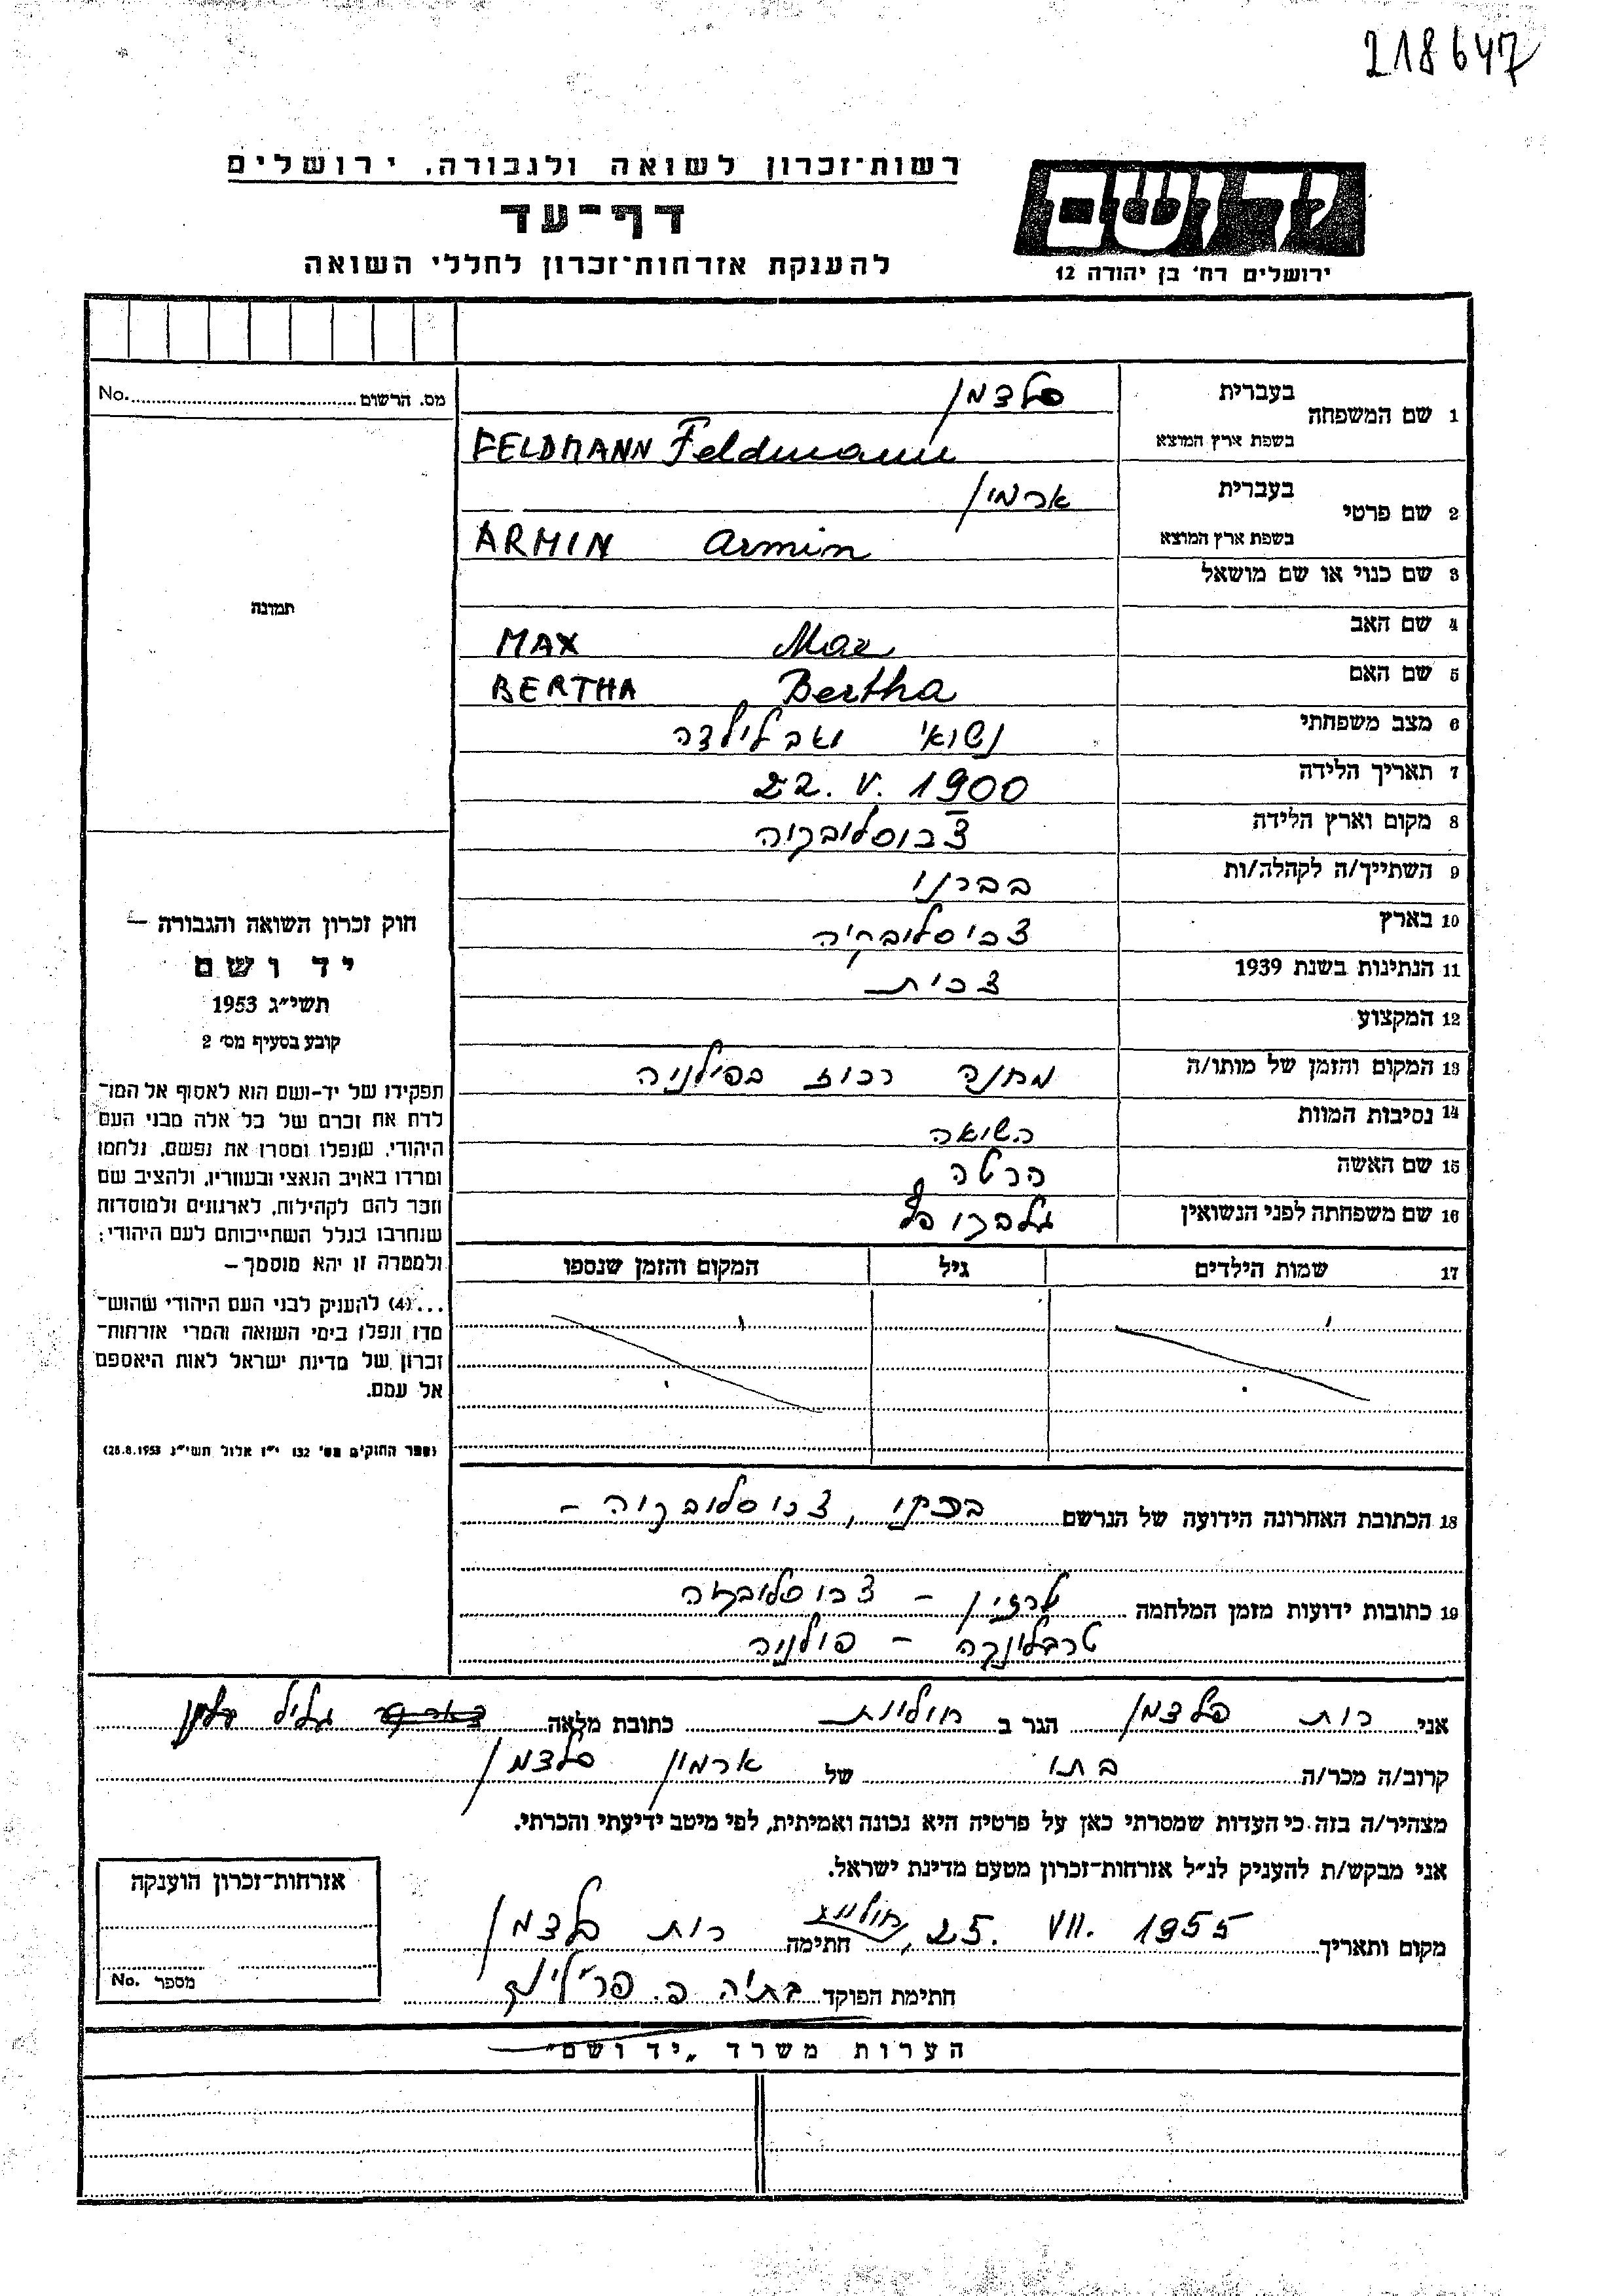 218647
רשות־זכרון לשואה ולגבורה, ירושלים
דף־עד
להענקת אזרחות־זכרון לחללי השואה
יד ושם
ירושלים רח' בן יהודה 12
מס. הרשום No.
תמונה
1 שם המשפחה בעברית פלדמן
בשפת ארץ המוצא FELDMANN Feldmann
2 שם פרטי בעברית ארמין
בשפת ארץ המוצא ARMIN Armin
3 שם כנוי או שם מושאל
4 שם האב MAX Max
5 שם האם BERTHA Bertha
6 מצב משפחתי נשוי ואב לילדה
7 תאריך הלידה 22. V. 1900
8 מקום וארץ הלידה צ'כוסלובקיה
9 השתייך/ה לקהלה/ות בברנו
10 בארץ צ'כוסלובקיה
11 הנתינות בשנת 1939 צכית
12 המקצוע
13 המקום והזמן של מותו/ה מחנה רכוז בפולניה
14 נסיבות המוות השואה
15 שם האשה הרטה
16 שם משפחתה לפני הנשואין
17 שמות הילדים גיל המקום והזמן שנספו
חוק זכרון השואה והגבורה –
יד ושם
תשי״ג 1953
קובע בסעיף מס׳ 2
תפקידו של יד-ושם הוא לאסוף אל המו־
לדת את זכרם של כל אלה מבני העם
היהודי, שנפלו ומסרו את נפשם, נלחמו
ומרדו באויב הנאצי ובעוזריו, ולהציב שם
וזכר להם לקהילות, לארגונים ולמוסדות
שנחרבו בגלל השתייכותם לעם היהודי;
ולמטרה זו יהא מוסמך –
...(4) להענין לבני העם היהודי שהוש־
מדו ונפלו בימי השואה והמרי אזרחות־
זכרון של מדינת ישראל לאות היאספם
אל עמם.
(ספר החוקים מס׳ 132 י״ז אלול תשי״ג 28.8.1953)
18 הכתובת האחרונה הידועה של הנרשם ברנו, צכוסלובקיה –
19 כתובות ידועות מזמן המלחמה טרזין – צכוסלובקיה
טרבלינקה – פולניה
אני רות פלדמן הגר ב חוליות כתובת מלאה גליל עליון
קרוב/ה מכר/ה בתו של ארמין פלדמן
מצהיר/ה בזה כי העדות שמסרתי כאן על פרטיה היא נכונה ואמיתית, לפי מיטב ידיעתי והכרתי.
אני מבקש/ת להעניק לנ״ל אזרחות־זכרון מטעם מדינת ישראל.
מקום ותאריך 25. VII. 1955, חוליות חתימה רות פלדמן
חתימת הפוקד בתיה פ.
אזרחות־זכרון הוענקה
מספר No.
הערות משרד „יד ושם״